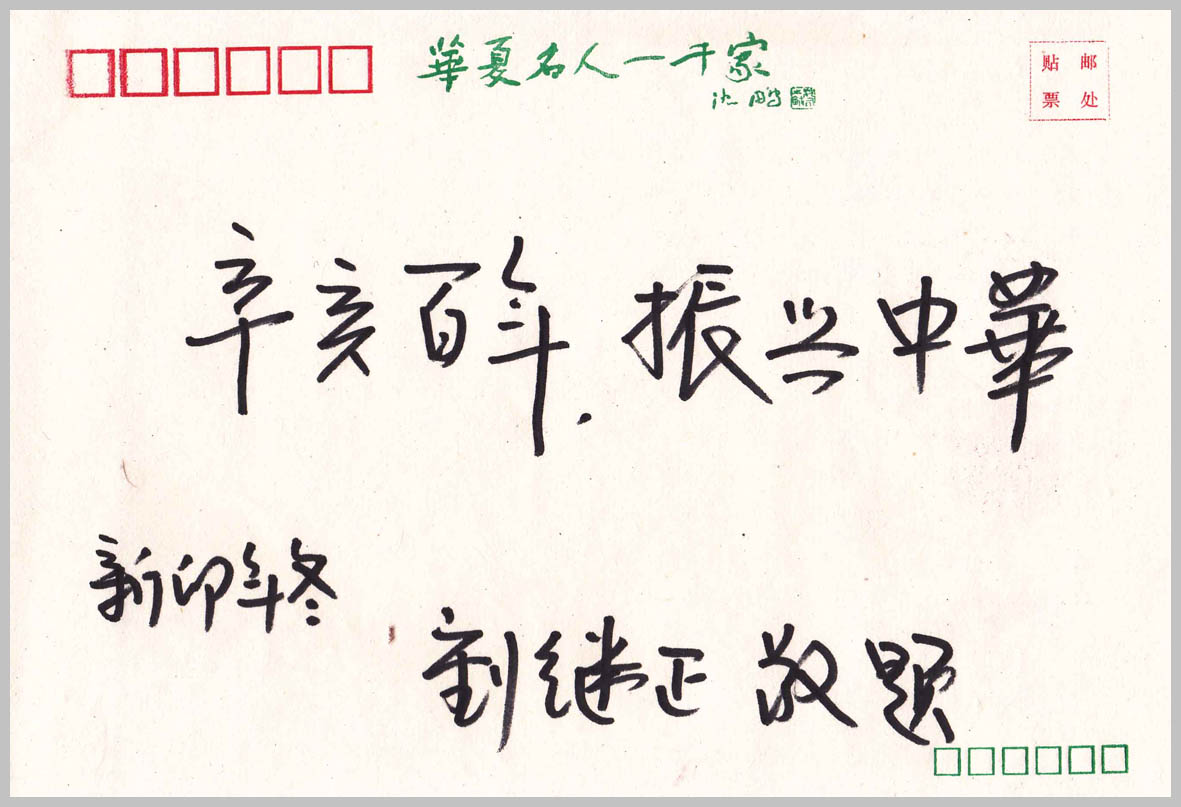 華夏名人一千家
沈鹏
贴邮
票处
辛亥百年.振兴中華
辛卯年冬
刘继正 敬题